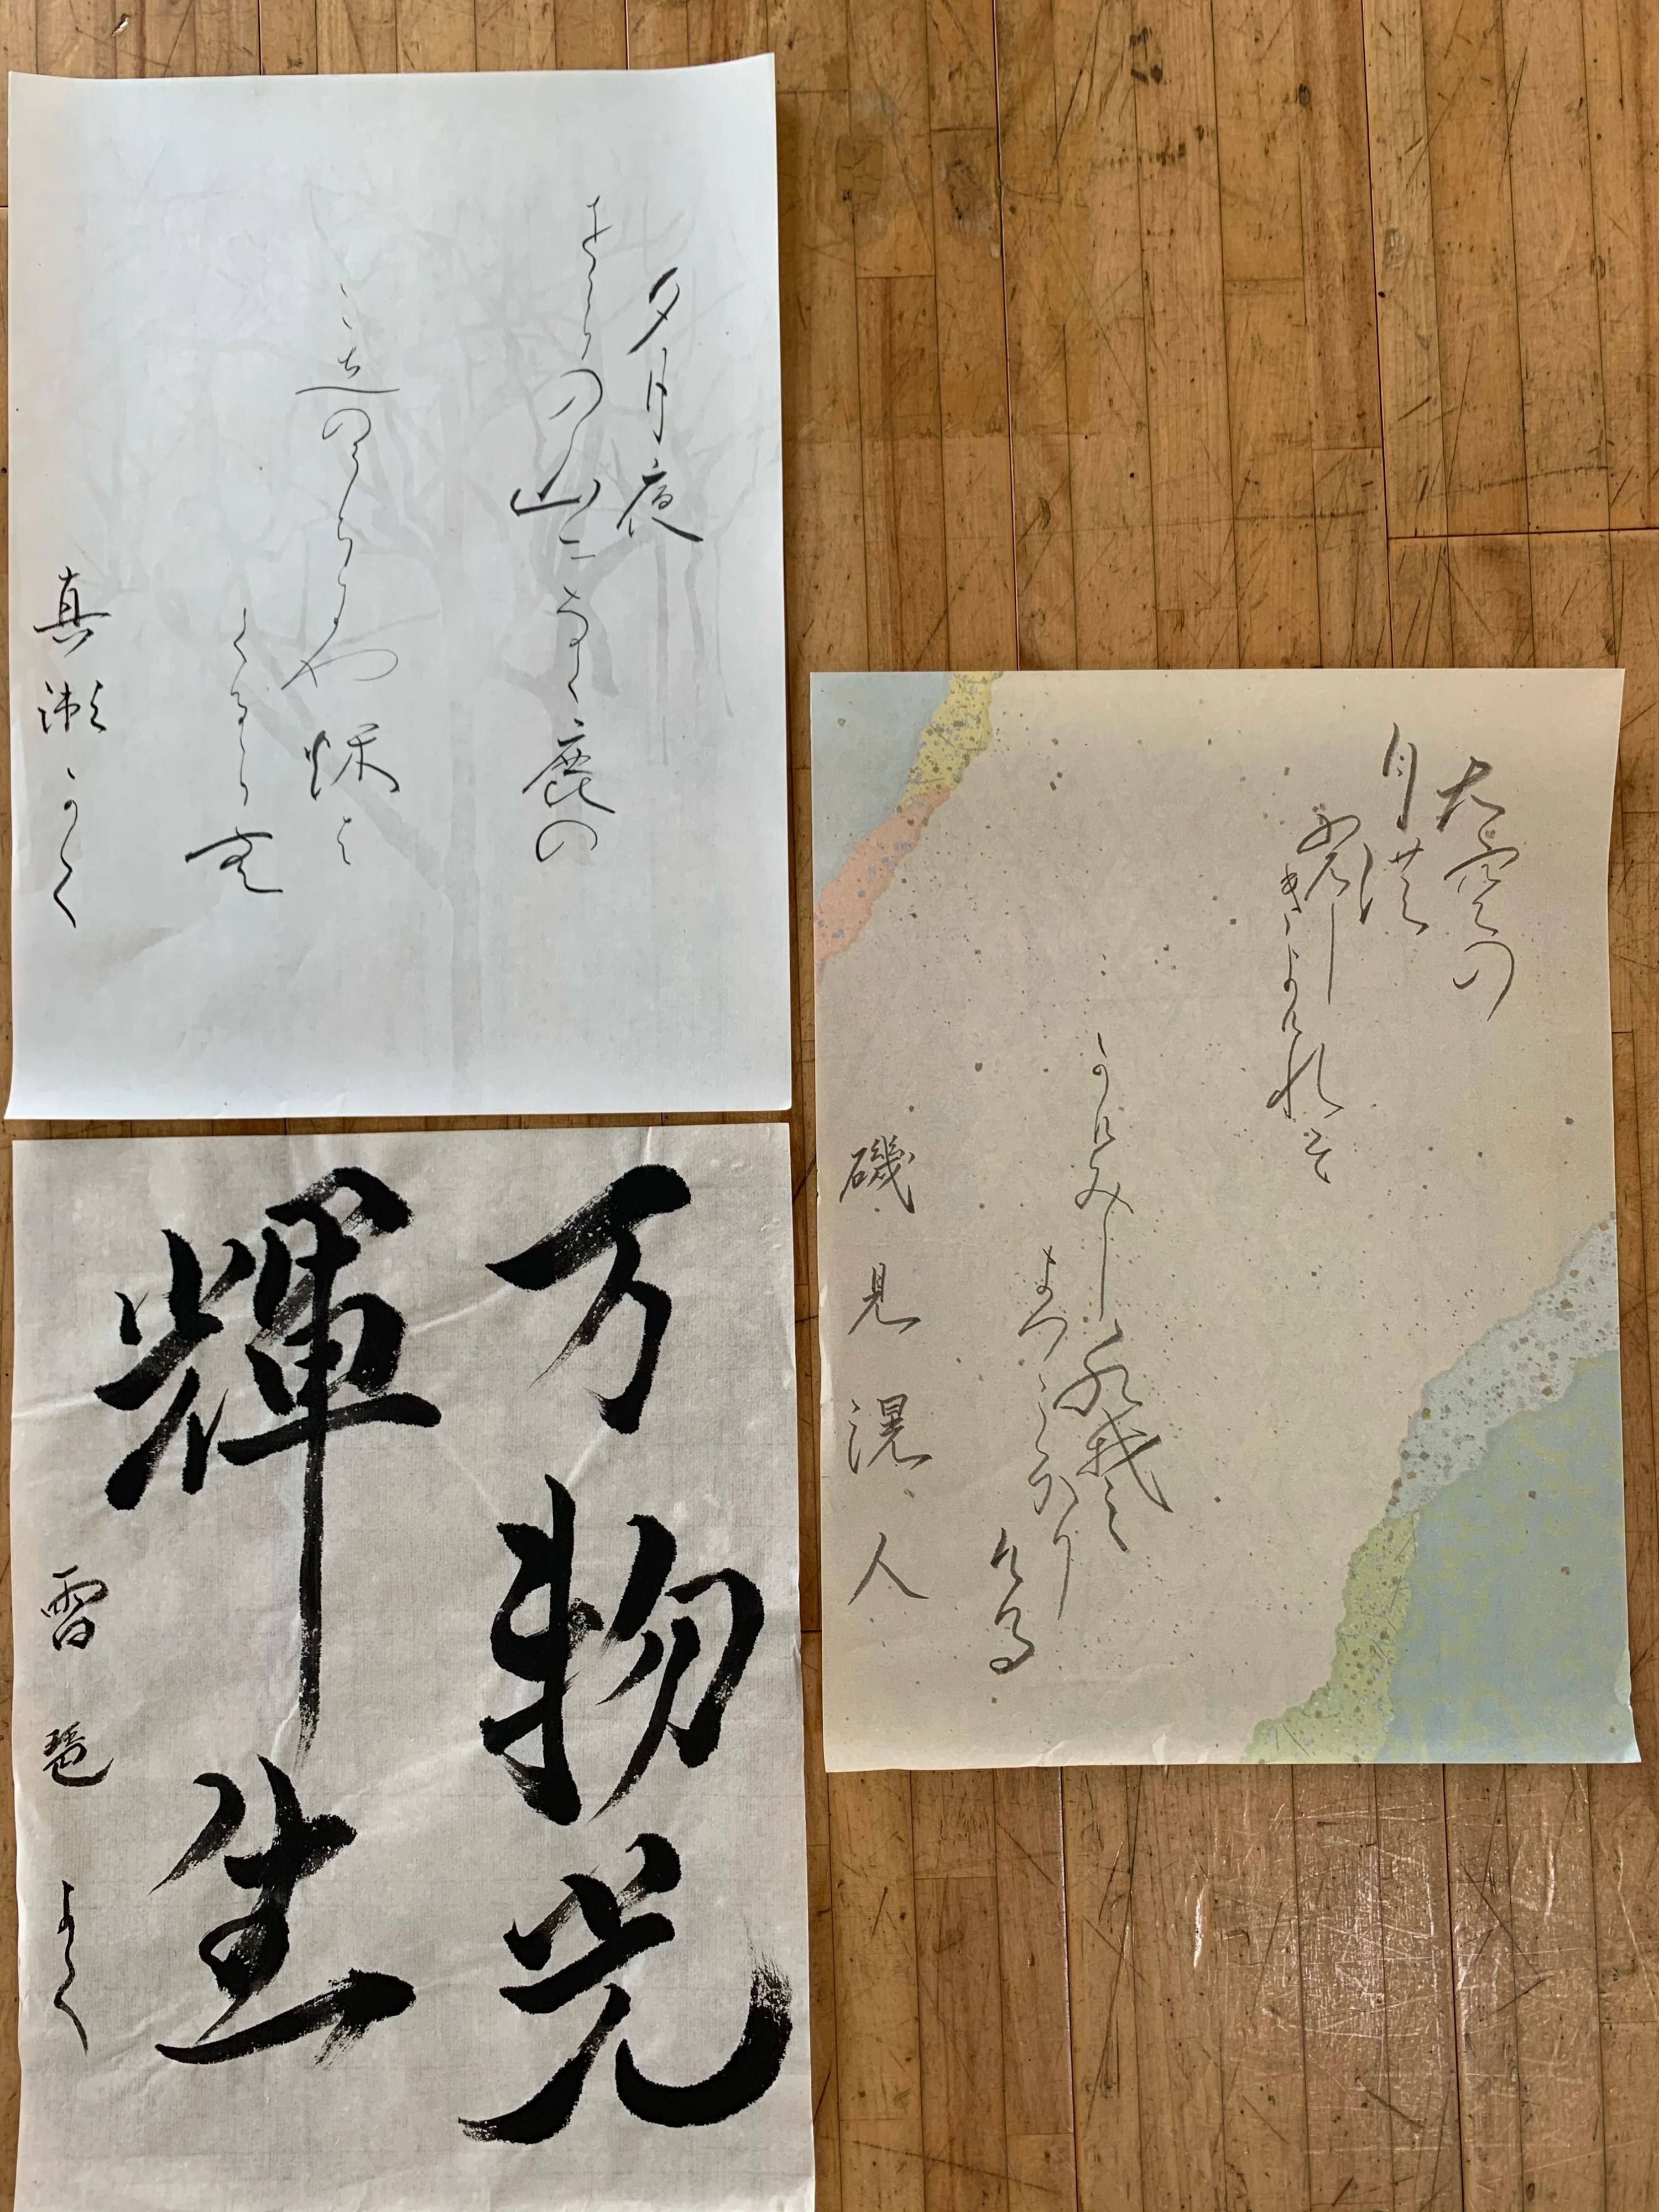 夕月夜
をくらの山になく鹿の
こゑのうちにや秌は
くるらむ
真瀬かく
大空の
月
きよけれは
かけみし水
まつこほり
ける
磯見滉人
万物光
輝生
雪琶